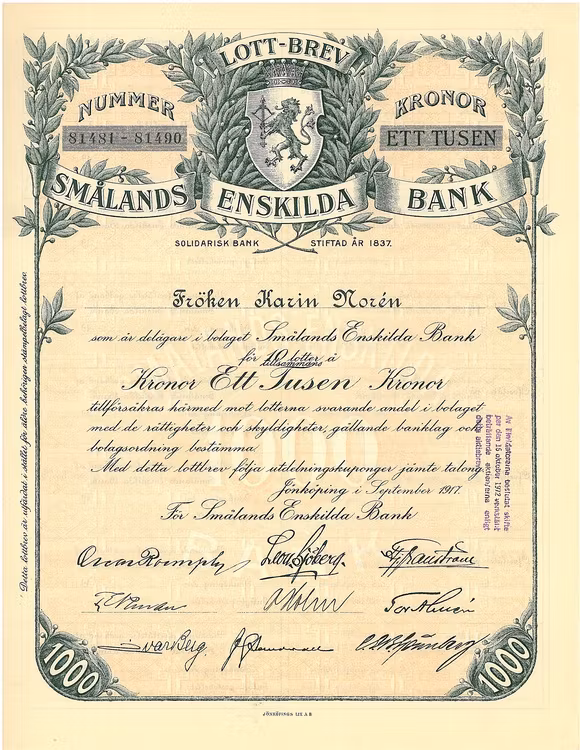 LOTT-BREV
NUMMER
KRONOR
81481 - 81490
ETT TUSEN
SMÅLANDS ENSKILDA BANK
SOLIDARISK BANK STIFTAD ÅR 1837.
Fröken Karin Norén
som är delägare i bolaget Smålands Enskilda Bank
för 10 lotter å
tillsammans
Kronor Ett Tusen Kronor
tillförsäkras härmed mot lotterna svarande andel i bolaget
med de rättigheter och skyldigheter, gällande banklag och
bolagsordning bestämma.
Med detta lottbrev följa utdelningskuponger jämte talong.
Jönköping i September 1917.
För Smålands Enskilda Bank
Detta lottbrev är utfärdat i stället för äldre behörigen stämpelbelagt lottbrev.
per den 15 oktober 1972
enligt
Leon. Sjöberg.
Ivar Berg.
1000
1000
JÖNKÖPINGS LIT. A.B